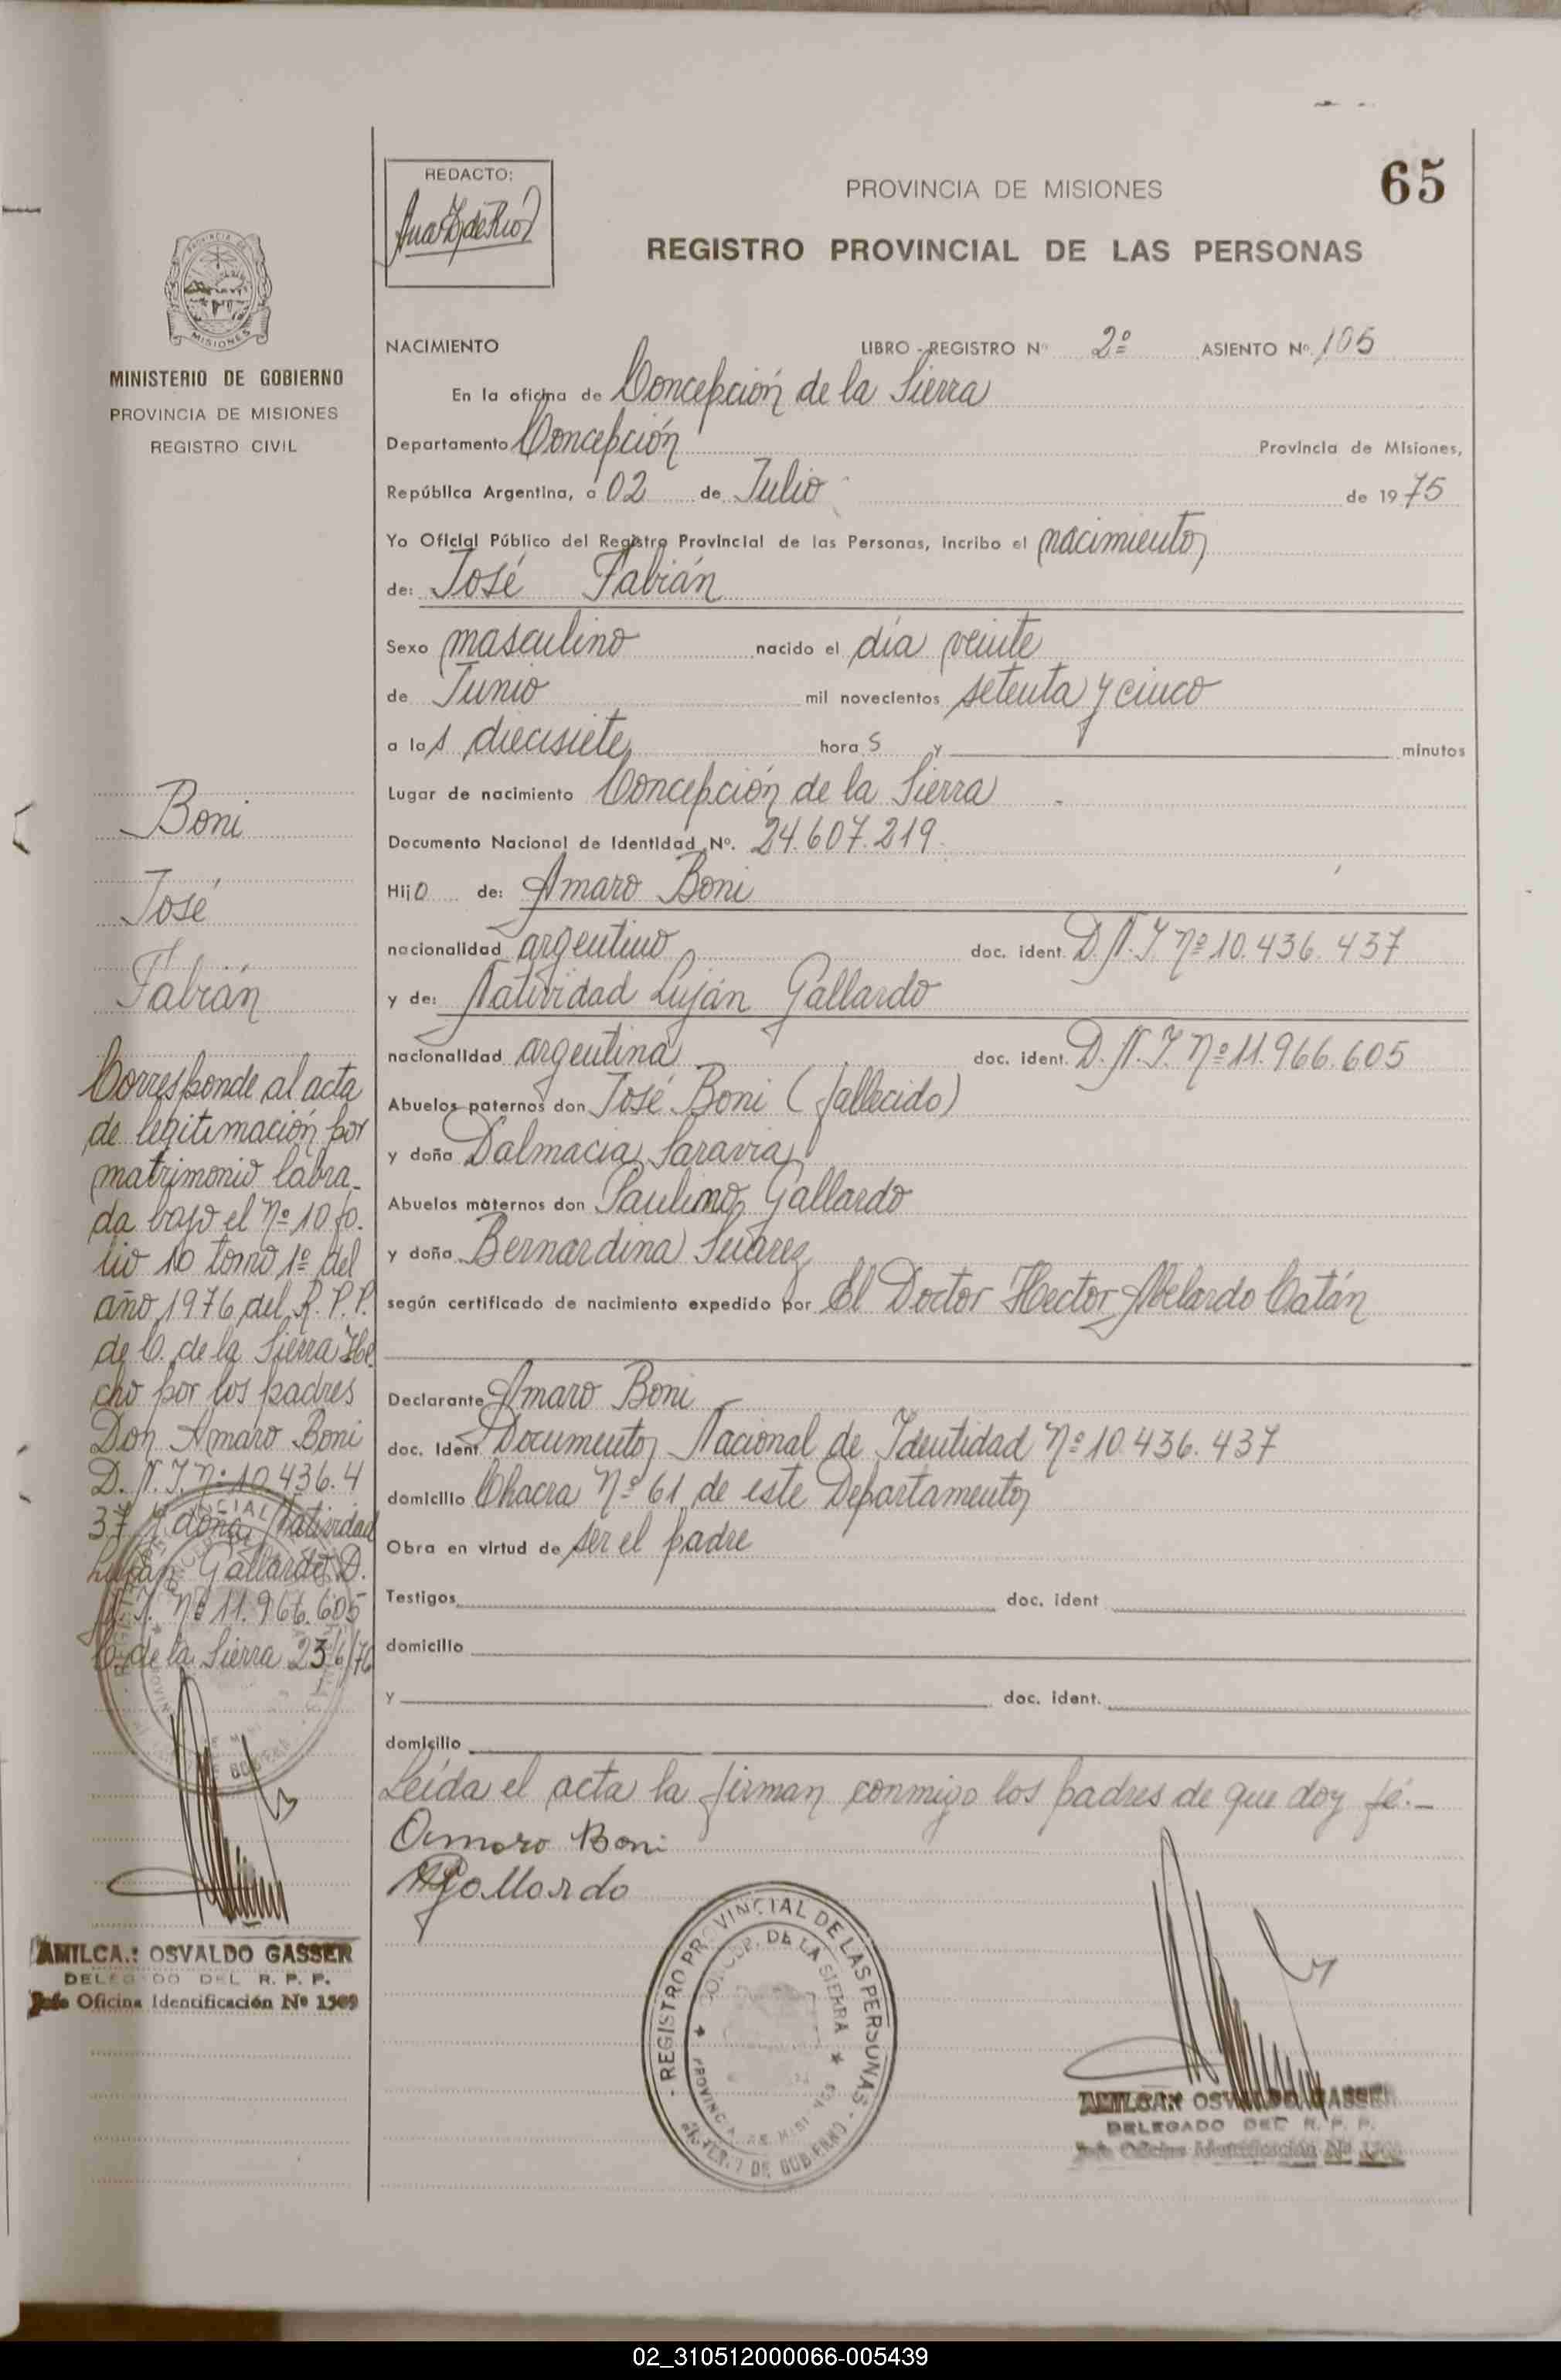 65
REDACTO:
PROVINCIA DE MISIONES
REGISTRO PROVINCIAL DE LAS PERSONAS
MISIONES
MINISTERIO DE GOBIERNO
PROVINCIA DE MISIONES
REGISTRO CIVIL
NACIMIENTO LIBRO - REGISTRO Nº 2º ASIENTO Nº 105
En la oficina de Concepción de la Sierra
Departamento Concepción Provincia de Misiones,
República Argentina, a 02 de Julio de 1975
Yo Oficial Público del Registro Provincial de las Personas, incribo el nacimiento
de: José Fabián
Sexo masculino nacido el día veinte
de Junio mil novecientos setenta y cinco
a las diecisiete horas y minutos
Lugar de nacimiento Concepción de la Sierra
Documento Nacional de Identidad Nº. 24.607.219
Hijo de: Amaro Boni
nacionalidad argentino doc. ident. D.N.I. Nº 10.436.437
y de: Natividad Luján Gallardo
nacionalidad argentina doc. ident. D.N.I. Nº 11.966.605
Abuelos paternos don José Boni (fallecido)
y doña Dalmacia Saravia
Abuelos maternos don Paulino Gallardo
y doña Bernardina Suárez
según certificado de nacimiento expedido por El Doctor Hector Abelardo Catán
Declarante Amaro Boni
doc. Ident Documento Nacional de Identidad Nº 10.436.437
domicilio Chacra Nº 61 de este Departamento
Obra en virtud de ser el padre
Testigos doc. ident
domicilio
y doc. ident.
domicilio
Leída el acta la firman conmigo los padres de que doy fé.-
Amaro Boni
Gallardo
Boni
José
Fabián
Corresponde al acta
de legitimación por
matrimonio labra-
da bajo el Nº 10 fo-
lio 10 tomo 1º del
año 1976 del R.P.P.
de C. de la Sierra He
cho por los padres
Don Amaro Boni
D.N.I. Nº 10.436.4
37 y doña Natividad
Luján Gallardo D.
N.I. Nº 11.966.605
C. de la Sierra 23/6/76
AMILCA.: OSVALDO GASSER
DELEGADO DEL R. P. P.
Jefe Oficina Identificación Nº 1509
- REGISTRO PROVINCIAL DE LAS PERSONAS -
CONCEP. DE LA SIERRA
PROVINCIA DE MISIONES
DE GOBIERNO
AMILCAR OSVALDO GASSER
DELEGADO DEL R. P. P.
Jefe Oficina Identificación Nº
02_310512000066-005439